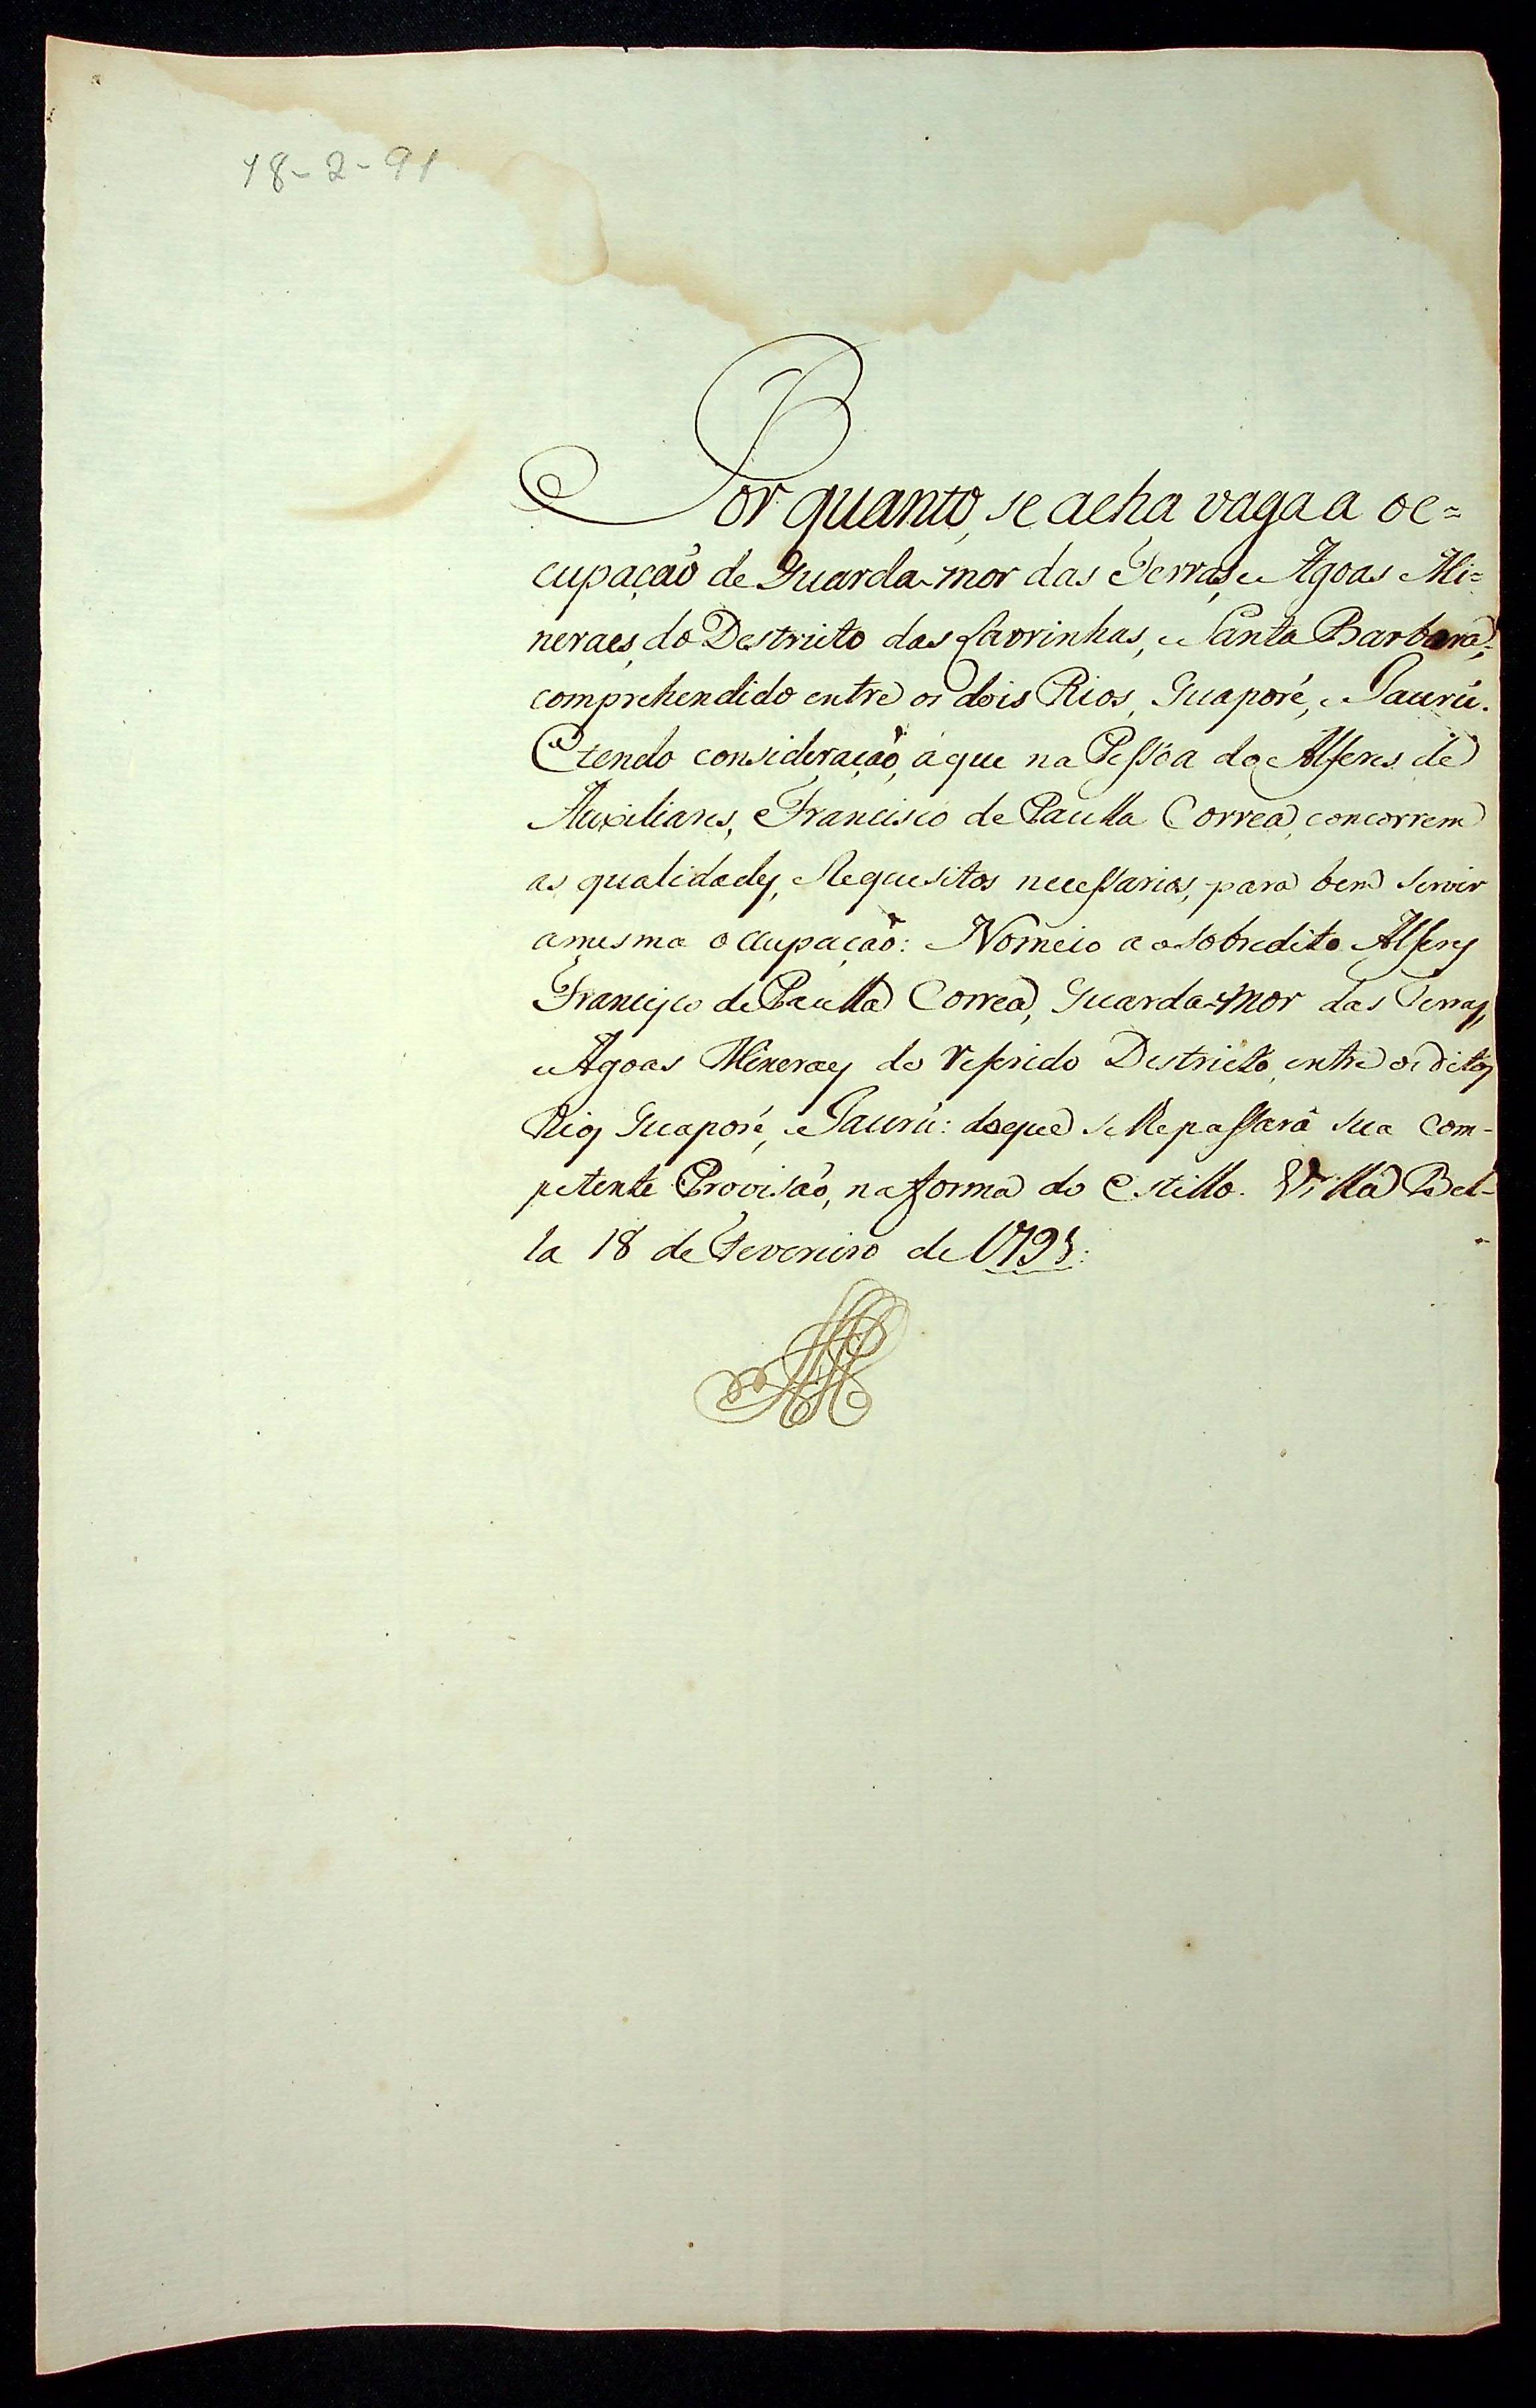 18-2-91
Por quanto, se acha vaga a oc=
cupação de Guarda-mor das Terras, e Agoas Mi=
neraes, do Destricto das Lavrinhas, e Santa Barbara;
comprehendido entre os dois Rios, Guaporé, e Jaurú.
E tendo consideração, á que na Pessoa do Alferes de
Auxiliares, Francisco de Paulla Correa, concorrem
as qualidades, e Requesitos necessarios, para bem servir
a mesma occupação: Nomeio a o sobredito Alferes
Francisco de Paulla Correa, Guarda-mor das Terras,
e Agoas Mineraes do referido Destricto, entre os ditos
Rios Guaporé, e Jaurú: do que se lhe passará sua Com-
petente Provisão, na forma do Estillo. Villa Bel-
la 18 de Fevereiro de 1791: